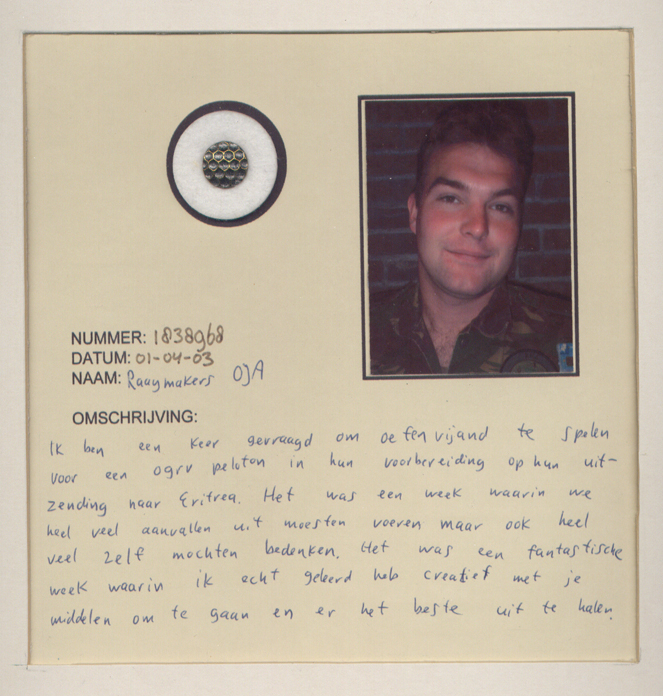 NUMMER: 1838968
DATUM: 01-04-03
NAAM: Raaymakers OJA
OMSCHRIJVING:
Ik ben een keer gevraagd om oefenvijand te spelen
voor een ogrv peloton in hun voorbereiding op hun uit-
zending naar Eritrea. Het was een week waarin we
heel veel aanvallen uit moesten voeren maar ook heel
veel zelf mochten bedenken. Het was een fantastische
week waarin ik echt geleerd heb creatief met je
middelen om te gaan en er het beste uit te halen.